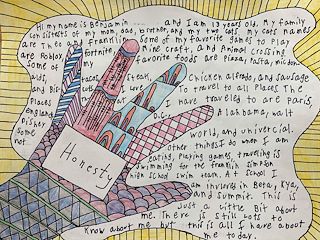 Hi my name is Benjamin and I am 13 years old. My family
consists of my mom, dad, brother, and my two cats. My cats names
are Theo and Franklin. Some of my favorite games to Play
are Roblox, Fortnite, Mine craft, and Animal crossing
Some of my favorite foods are Pizza, Pasta, mcdon
alds, tacos, Steak, Chicken alfredo, and Sausage
and I love to travel to all Places The
Places I have traveled to are Paris,
England D.C., Alabama, Walt
Disney World, and univercial.
not Other things I do when I am
eating, Playing games, traveling is
swimming for the franklin Simpson
high school swim team. At school I
am involved in Beta, Kya,
and Summit. This is
Just a little Bit about
me. There is still lots to
Know about me but this is all I have about
me to day.
Honesty